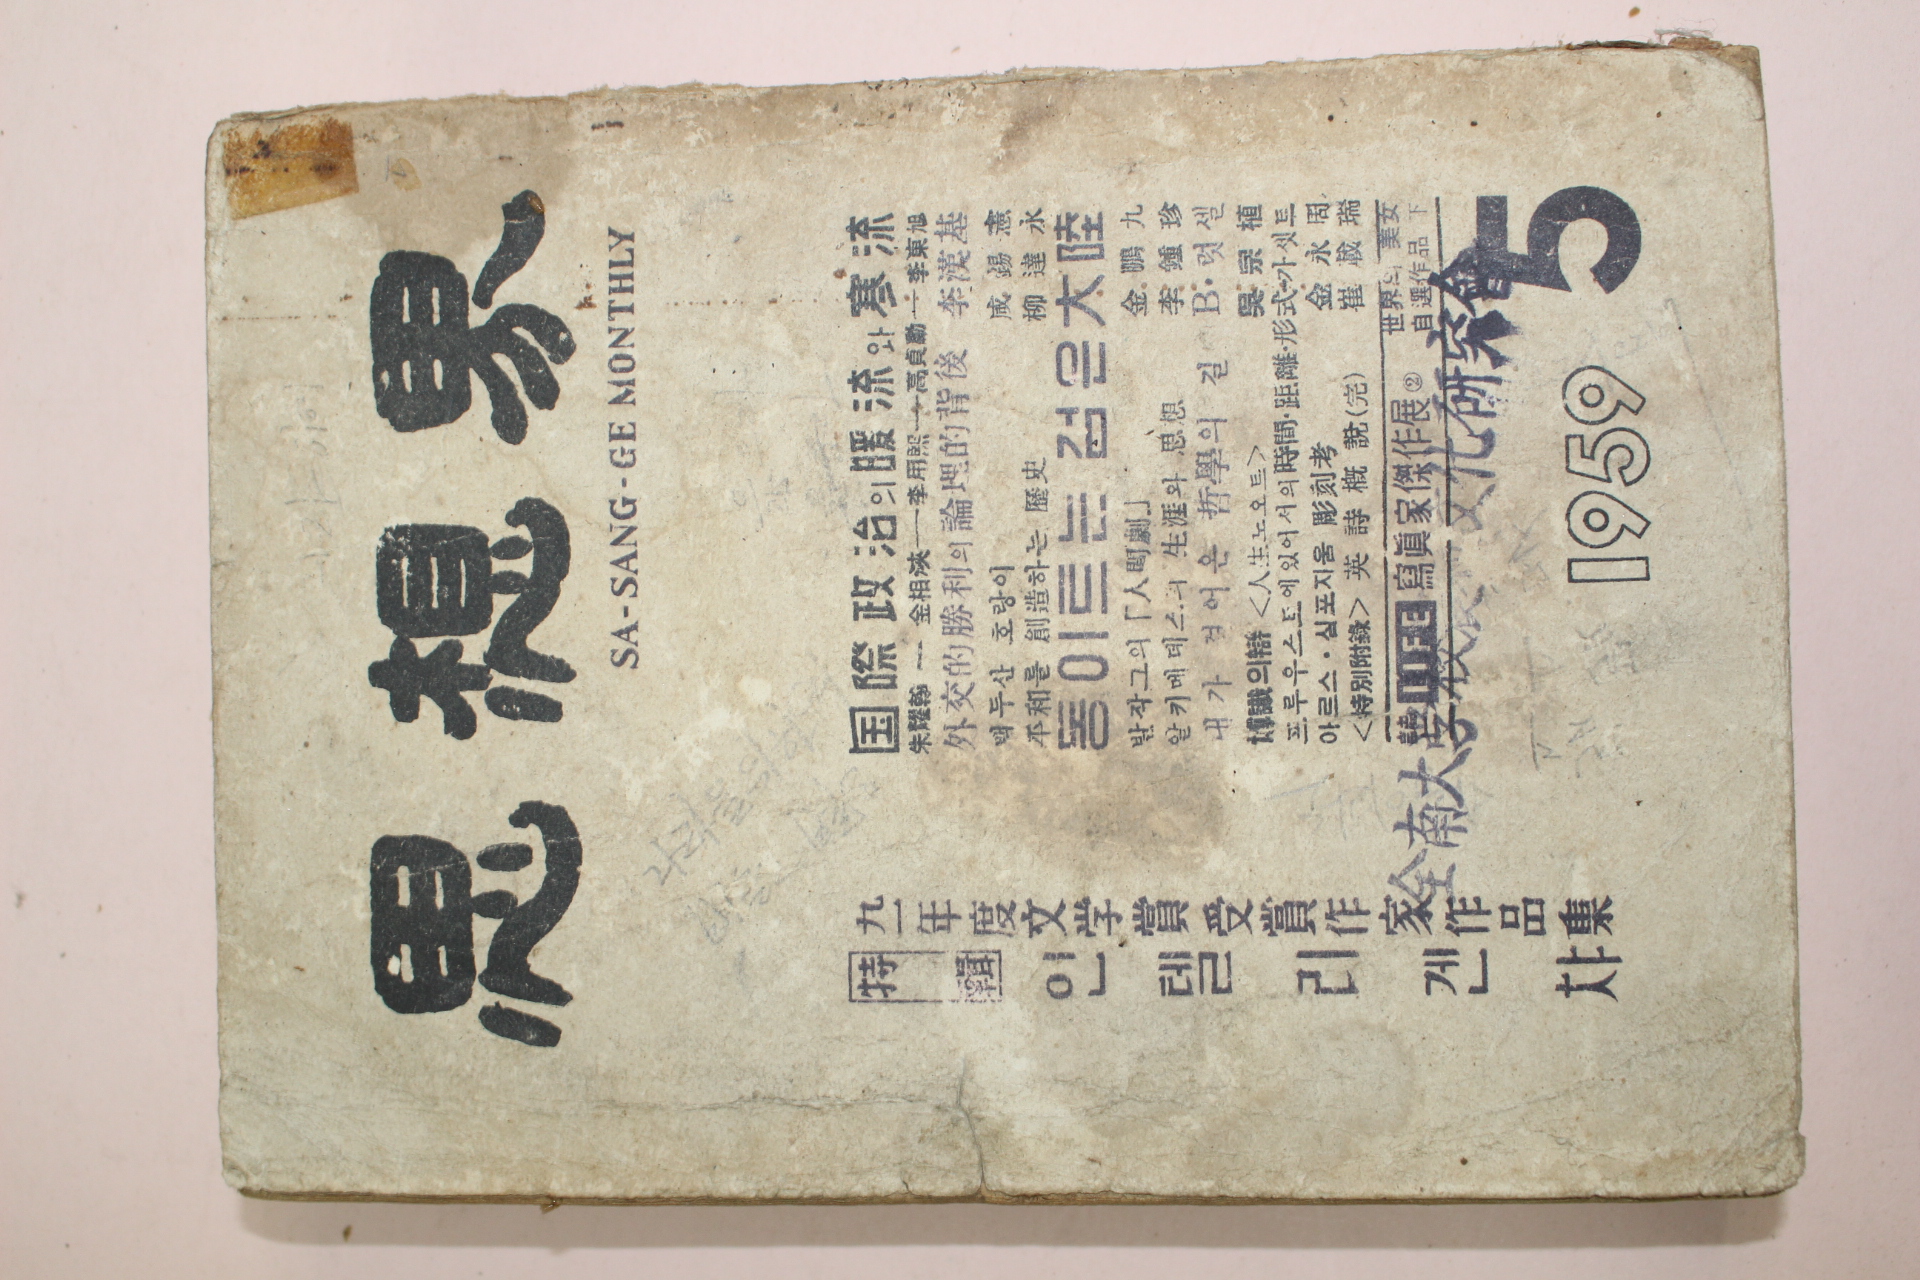 思想界
SA-SANG-GE MONTHLY
国際政治의暖流와寒流
朱耀翰—金相浹—李用熙—高貞勳—李東旭
外交的勝利의論理的背後 李漢基
백두산 호랑이 咸錫憲
平和를 創造하는 歷史 柳達永
동이트는검은大陸
발작그의「人間劇」 金鵬九
알키메데스의 生涯와 思想 李鍾珍
내가 걸어온 哲學의 길 B·럿셀
博識의辯 <人生노오트> 吳宗植
프루우스트에있어서의時間·距離·形式 가싯트
아르스·실포지움 彫刻考 金永周
<特別附錄> 英詩槪說(完) 崔載瑞
寫眞家傑作展② 世界의 美女
自選作品 下
特輯
九一年度文学賞受賞作家作品集
인텔리겐챠
全南大學校 文化硏究會
1959
5